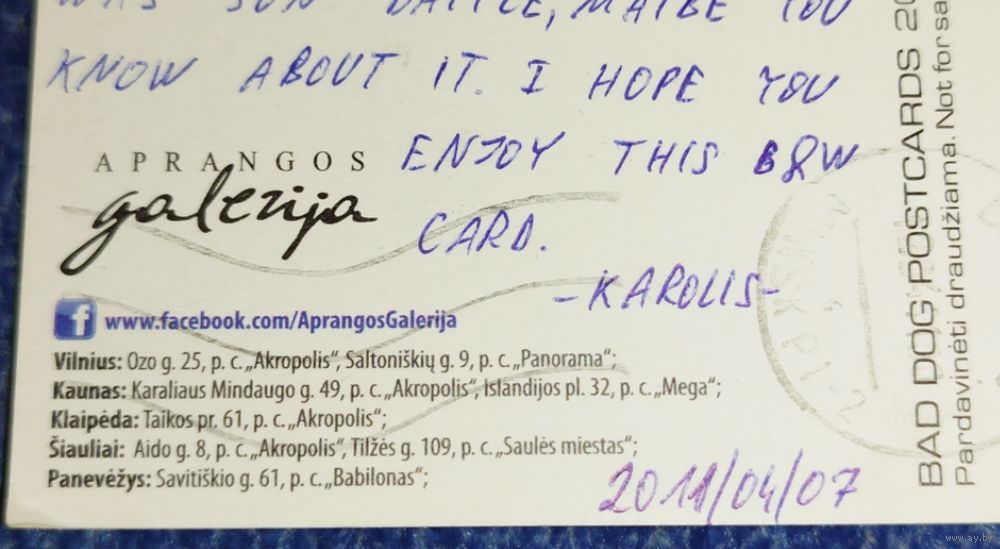 WAS SUN BATTLE, MAYBE YOU
KNOW ABOUT IT. I HOPE YOU
ENJOY THIS B&W
CARD.
-KAROLIS-
APRANGOS
galerija
f www.facebook.com/AprangosGalerija
Vilnius: Ozo g. 25, p. c. „Akropolis“, Saltoniškių g. 9, p. c. „Panorama“;
Kaunas: Karaliaus Mindaugo g. 49, p. c. „Akropolis“, Islandijos pl. 32, p. c. „Mega“;
Klaipėda: Taikos pr. 61, p. c. „Akropolis“;
Šiauliai: Aido g. 8, p. c. „Akropolis“, Tilžės g. 109, p. c. „Saulės miestas“;
Panevėžys: Savitiškio g. 61, p. c. „Babilonas“;
2011/04/07
BAD DOG POSTCARDS 20
Pardavinėti draudžiama. Not for sa
www.ay.by